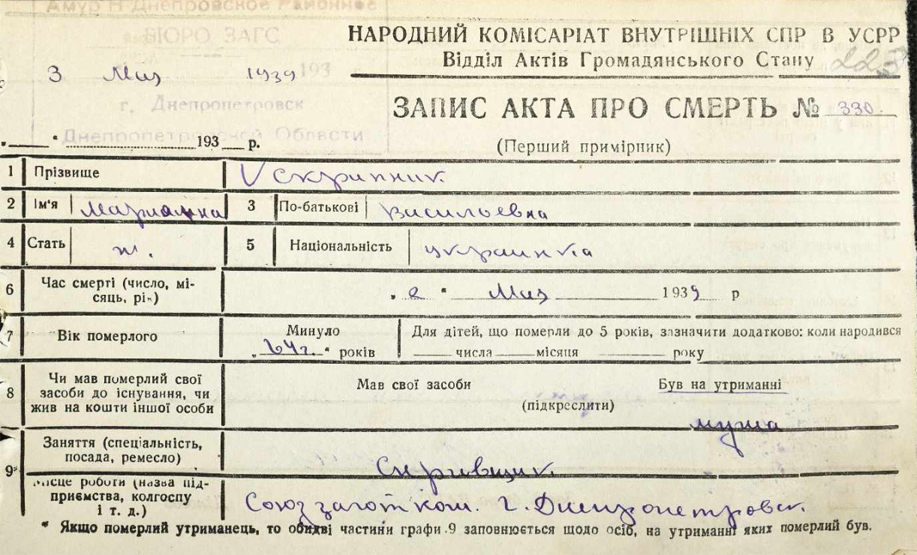 Амур Н Днепровское Районное
БЮРО ЗАГС
НАРОДНИЙ КОМІСАРІАТ ВНУТРІШНІХ СПР В УСРР
Відділ Актів Громадянського Стану
3 Мая 1939 193
г. Днепропетровск
ЗАПИС АКТА ПРО СМЕРТЬ № 330
Днепропетровской Области
„___“ 193___ р.
(Перший примірник)
1 Прізвище V Скрипник
2 Ім'я Марианна 3 По-батькові Васильевна
4 Стать ж. 5 Національність украинка
6 Час смерті (число, мі-
сяць, рік) „2“ Мая 1939 р
7 Вік померлого Минуло Для дітей, що померли до 5 років, зазначити додатково: коли народився
„64г.“ років ___числа ___місяця ___року
8 Чи мав померлий свої
засоби до існування, чи
жив на кошти іншої особи
Мав свої засоби Був на утриманні
(підкреслити)
мужа
9* Заняття (спеціальність,
посада, ремесло)
Місце роботи (назва під-
приємства, колгоспу
і т. д.)
Союззаготкож. г. Днепропетровск.
* Якщо померлий утриманець, то обидві частини графи 9 заповнюється щодо осіб, на утриманні яких померлий був.